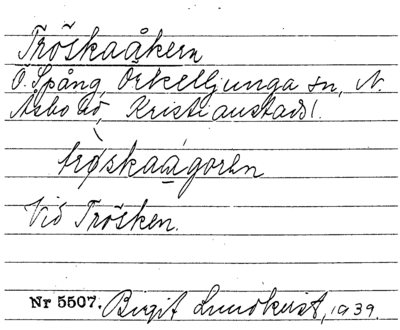 Tröskaåkern
Ö. Spång, Örkelljunga sn, N.
Åsbo hd, Kristianstads l.
trøskaågorən
Vid Trösken.
Nr 5507. Birgit Lundkvist, 1939.